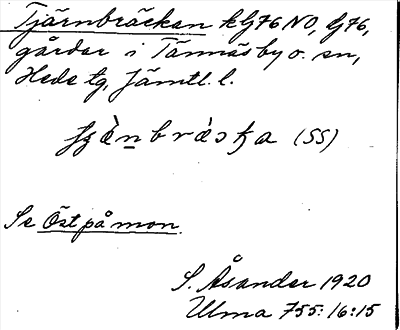 Tjärnbräckan k G76 NO, G76,
gårdar i Tännäs by o. sn,
Hede tg, Jämtl. l.
(SS)
Se Öst på mon.
S. Åsander 1920
Ulma 755:16:15